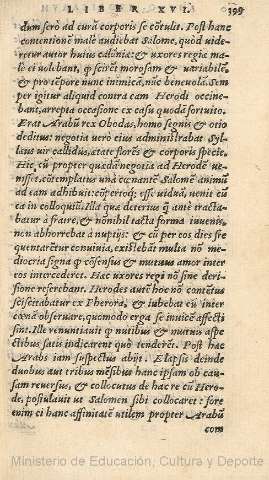 LIBER XVI. 399
dum serò ad curā corporis se cōtulit. Post hanc
contentionē malè audiebat Salome, quod vide-
retur autor huius calūniæ: & uxores regiæ ma-
lè ei volebant, ꝗ scirēt morosam & variabilē
& pro tēpore nunc inimicā, nūc beneuolā. Sem
per igitur aliquid contra eam Herodi occine-
bant, arrepta occasione ex casu quodā fortuito.
Erat Arabū rex Obodas, homo segnis & otio
deditus: negotia verò eius administrabat Syl-
læus vir callidus, ætate florēs & corporis specie.
Hic cū propter quædā negotia ad Herodē ve-
nisset, cōtemplatus unà cœnantē Salomē animū
ad eam adhibuit: cōpertoq́; esse viduā, venit cū
ea in colloquiū. Illa quæ deterius ꝗ̄ antè tracta-
batur à fratre, & nōnihil tacta forma iuuenis,
non abhorrebat à nuptijs: & cū per eos dies fre
quentarētur conuiuia, existebāt multa nō me-
diocria signa ꝗ cōsensus & mutuus amor inter
eos intercederet. Hæc uxores regi nō sine deri-
sione referebant. Herodes autē hoc nō contētus
sciscitabatur ex Pherora, & iubebat cū inter
cœnā obseruare, quomodo erga se inuicē affecti
sint. Ille renuntiauit ꝗ nutibus & mutuis aspe
ctibus satis indicarent quò tenderēt. Post hæc
Arabs iam suspectus abijt. Elapsis deinde
duobus aut tribus mēsibus hanc ipsam ob cau-
sam reuersus, & collocutus de hac re cū Hero-
de, postulauit ut Salomen sibi collocaret: fore
enim ei hanc affinitatē utilem propter Arabū
com
Ministerio de Educación, Cultura y Deporte